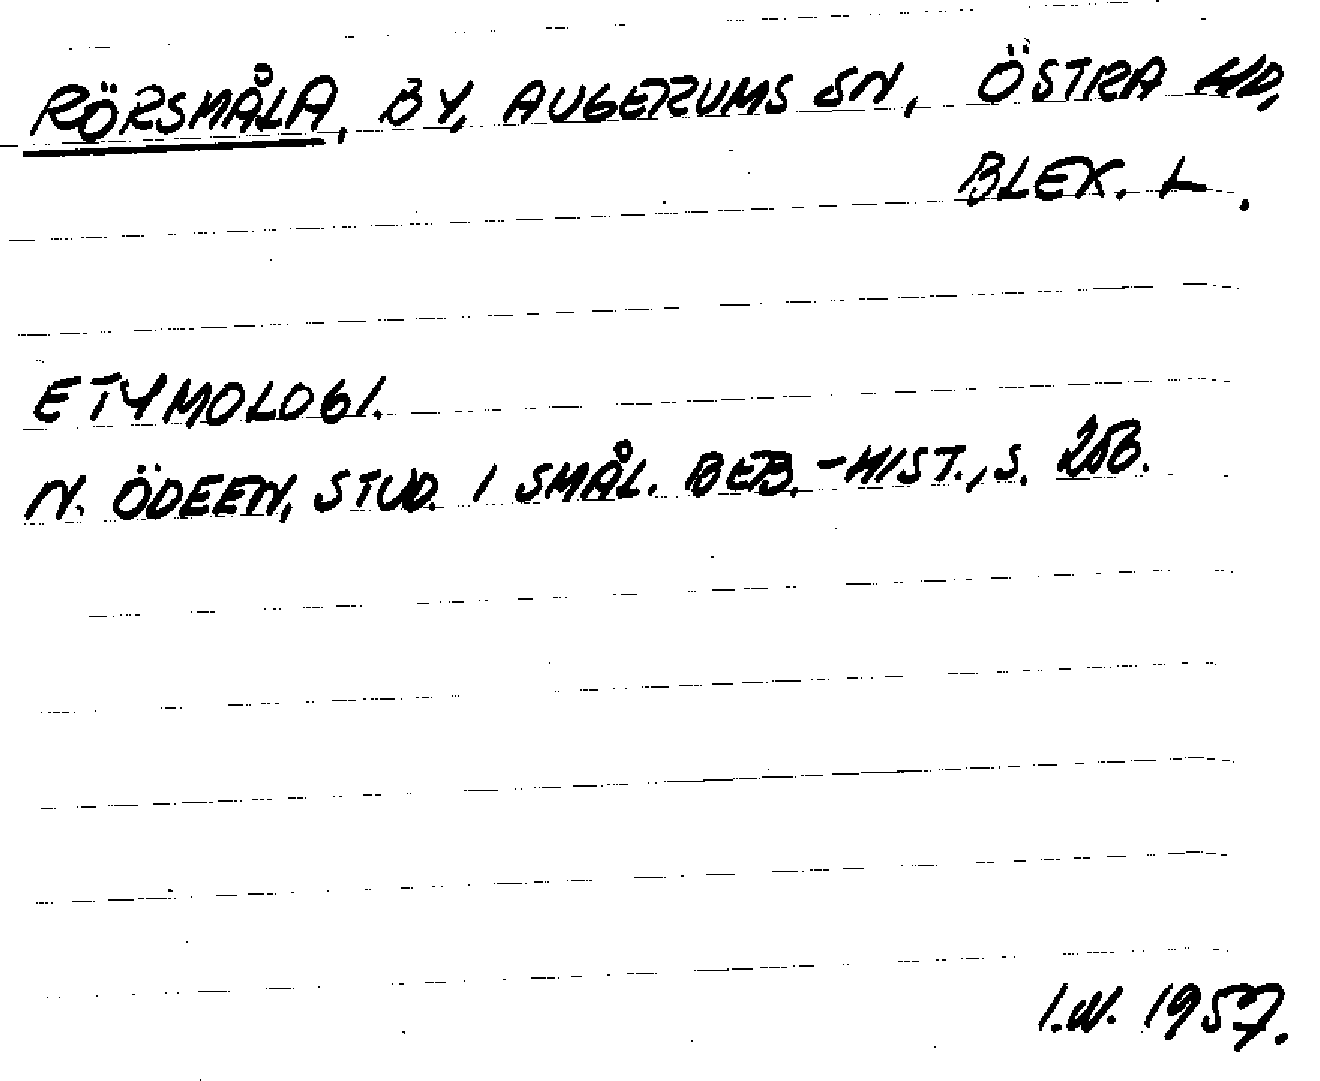 RÖRSMÅLA, BY, AUGERUMS SN, ÖSTRA HD,
BLEK. L.
ETYMOLOGI.
N. ÖDEEN, STUD. I SMÅL. BEB.-HIST., S.
I.W. 1957.